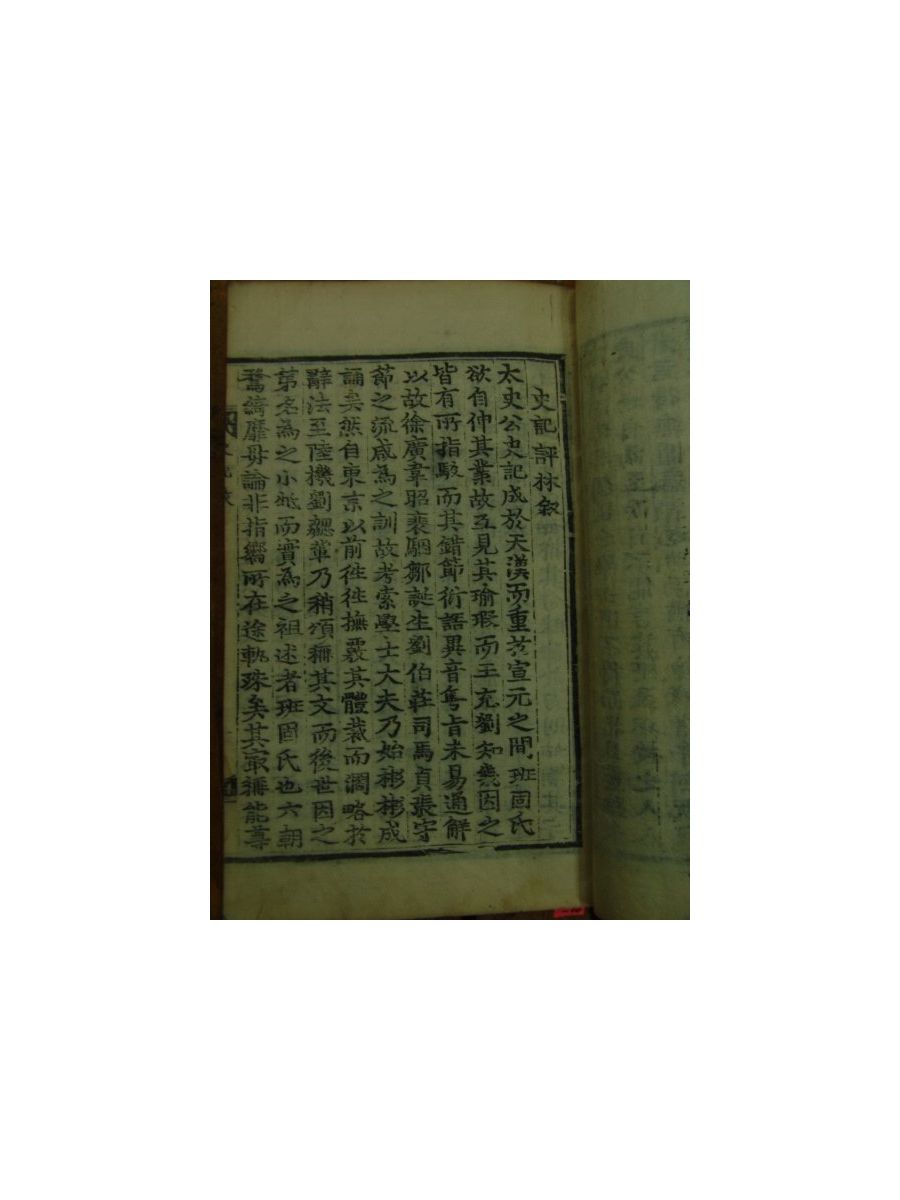 史記評林叙
太史公史記成於天漢而重於宣元之間班固氏
欲自伸其業故互見其瑜瑕而王充劉知幾因之
皆有所指駁而其錯節術語異音奥旨未易通解
以故徐廣韋昭裴駰鄒誕生劉伯莊司馬貞張守
節之流咸為之訓故考索學士大夫乃始彬彬成
誦矣然自東京以前往往撫襲其體裁而濶略於
辭法至陸機劉勰輩乃稍頌稱其文而後世因之
第名為之小觝而實為之祖述者班固氏也六朝
騖綺靡毋論非指嚮所在途軌殊矣其㝡稱能尊